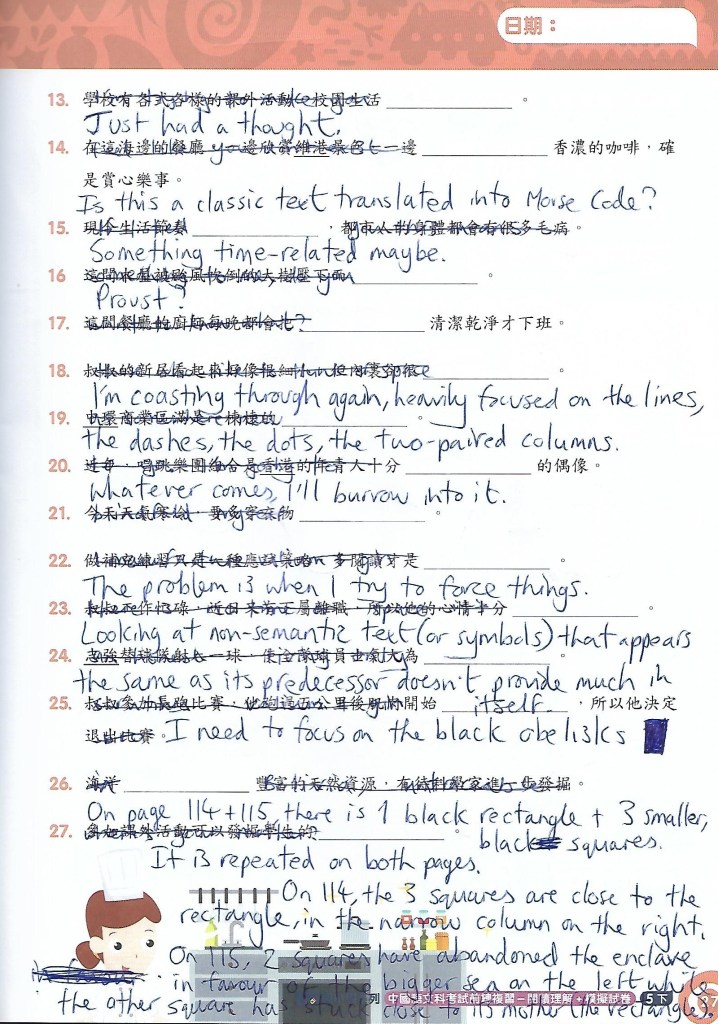 日期：
13. 學校有各式各樣的課外活動，校園生活 ________ 。
Just had a thought.
14. 在這海邊的餐廳，一邊欣賞維港景色，一邊 ________ 香濃的咖啡，確
是賞心樂事。
Is this a classic text translated into Morse Code?
15. 現今生活節奏 ________ ，都市人的身體都會有很多毛病。
Something time-related maybe.
16 ________ 。
Proust?
17. 這間餐廳的廚師每晚都會把 ________ 清潔乾淨才下班。
18. 叔叔的新居看起來好像很細，但內裏卻很 ________ 。
I'm coasting through again, heavily focused on the lines,
19. 中環商業區滿是一棟棟的 ________ 。
the dashes, the dots, the two-paired columns.
20. 近年，唱跳樂團組合是香港的年青人十分 ________ 的偶像。
Whatever comes, I'll burrow into it.
21. 今天天氣寒冷，要多穿衣物 ________ 。
22. 做補充練習只是一種應試策略，多閱讀才是 ________ 。
The problem is when I try to force things.
23. 叔叔工作忙碌，近日又有下屬離職，所以他的心情十分 ________ 。
Looking at non-semantic text (or symbols) that appears
24. ________ 。
the same as its predecessor doesn't provide much in
25. 叔叔參加長跑比賽，他跑這五公里後，開始 itself. ，所以他決定
退出比賽。I need to focus on the black obelisks
26. 海洋 ________ 豐富的天然資源，有待科學家進一步發掘。
On page 114 + 115 there is 1 black rectangle + 3 smaller,
27. 參加課外活動可以發掘學生的 ________ 。
black squares.
It is repeated on both pages.
On 114, the 3 squares are close to the
rectangle, in the narrow column on the right.
On 115, 2 squares have abandoned the enclave
in favour of the bigger sea on the left while
列 中國語文科考試前總複習－閱讀理解＋模擬試卷－5下 37
the other square has stuck close to its mother (the rectangle).